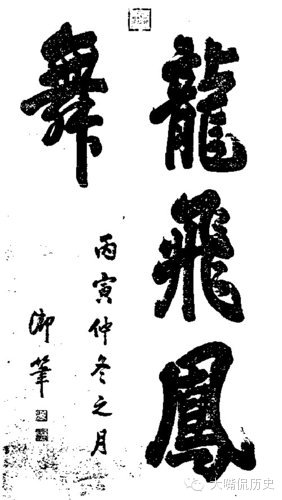 龍飛鳳
舞
丙寅仲冬之月
御筆
大嘴侃历史